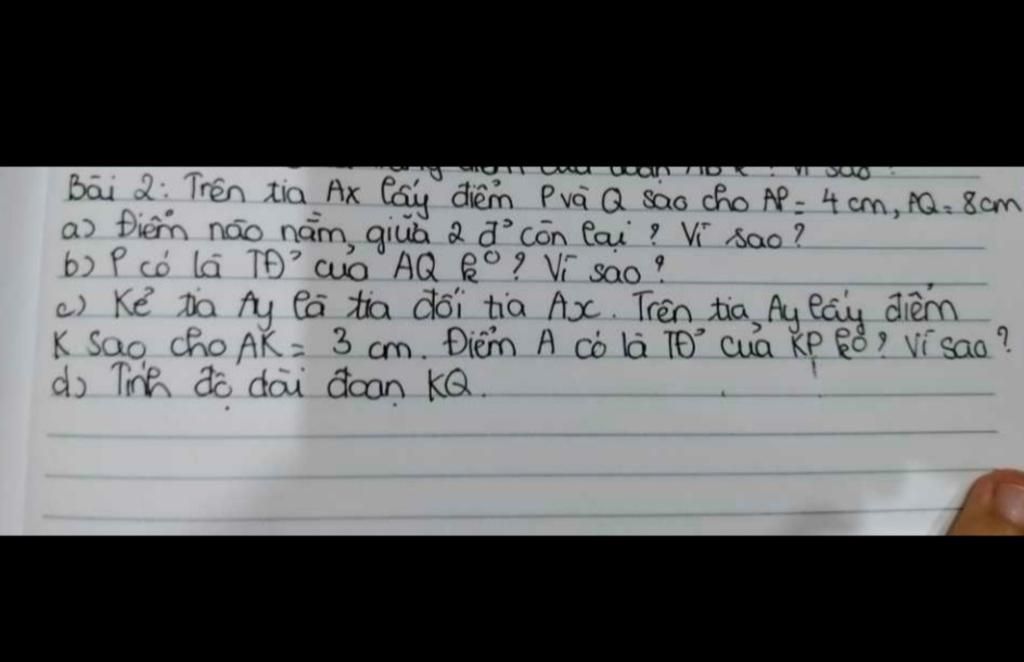 Bài 2: Trên tia Ax lấy điểm P và Q sao cho AP = 4 cm, AQ = 8cm
a) Điểm nào nằm giữa 2 đ' còn lại ? Vì sao ?
b) P có là TĐ' của AQ k° ? Vì sao ?
c) Kẻ tia Ay là tia đối tia Ax. Trên tia Ay lấy điểm
K sao cho AK = 3 cm. Điểm A có là TĐ' của KP k° ? Vì sao ?
d) Tính độ dài đoạn KQ.